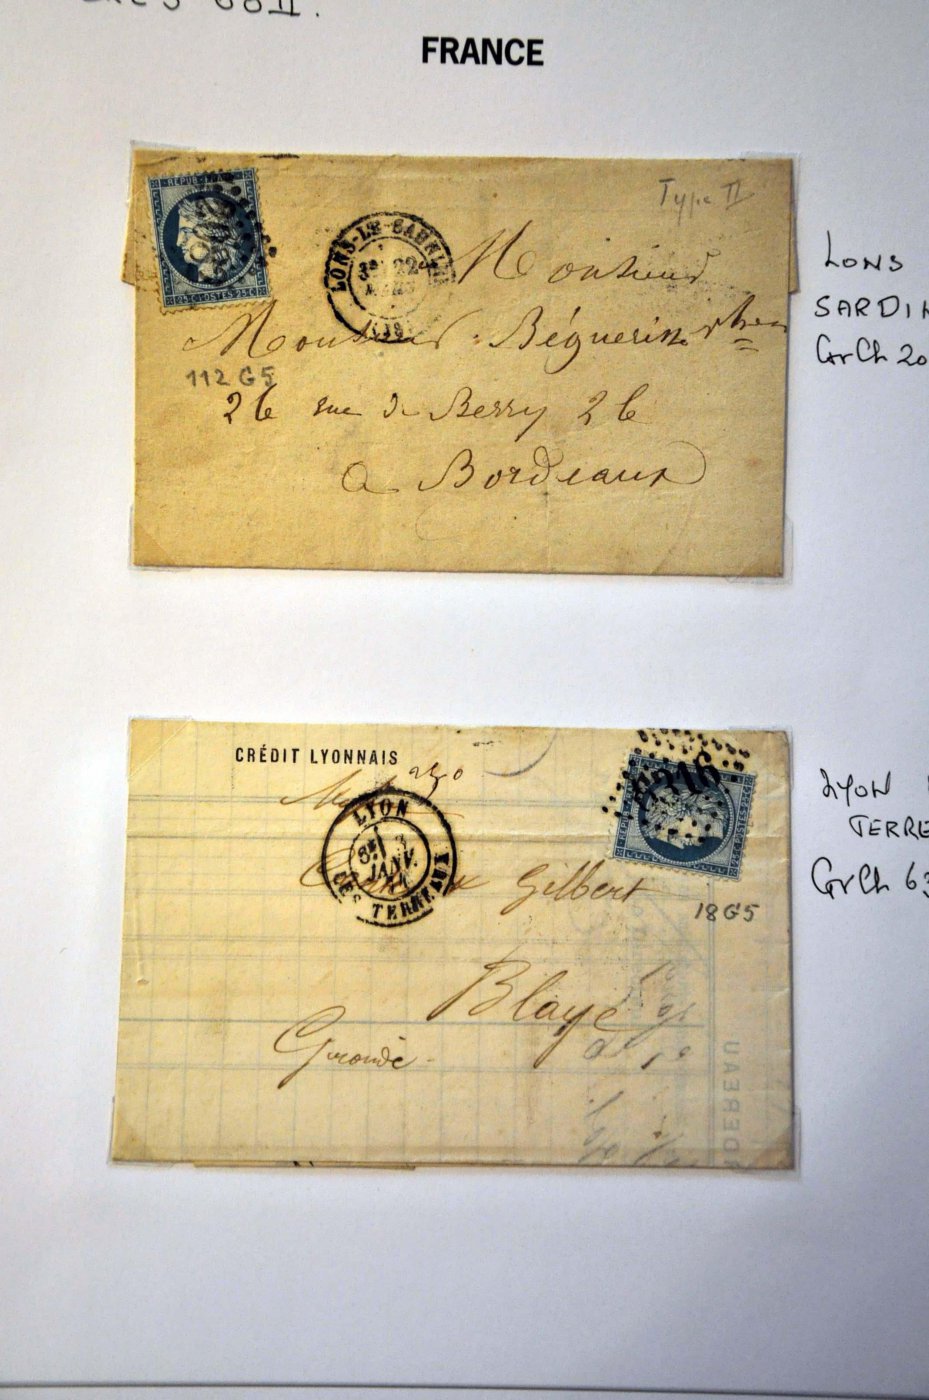 60II.
FRANCE
REPUB
25 C POSTES 25 C
LONS-LE-SAUNIER
22
MARS
(38)
Type II
Monsieur
Monsieur Béguerin
112 G5
26 rue de Berry 26
a Bordeaux
LONS
SARDIN
GrCh 20
CRÉDIT LYONNAIS
LYON
3
JANV.
LES TERREAUX
6316
Gilbert
18G5
Blaye
Gironde
DEREAU
LYON
TERRE
GrCh 63